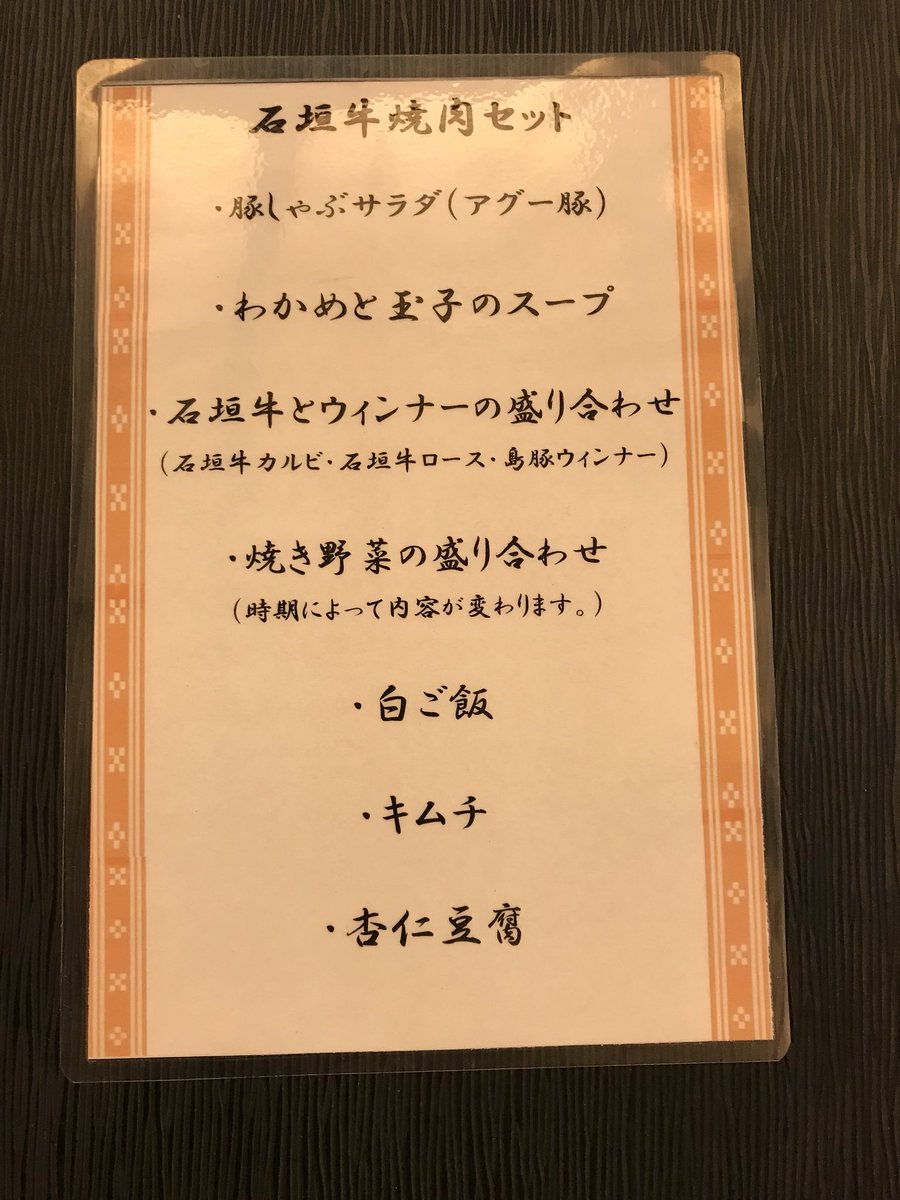 石垣牛焼肉セット
・豚しゃぶサラダ(アグー豚)
・わかめと玉子のスープ
・石垣牛とウィンナーの盛り合わせ
(石垣牛カルビ・石垣牛ロース・島豚ウィンナー)
・焼き野菜の盛り合わせ
(時期によって内容が変わります。)
・白ご飯
・キムチ
・杏仁豆腐